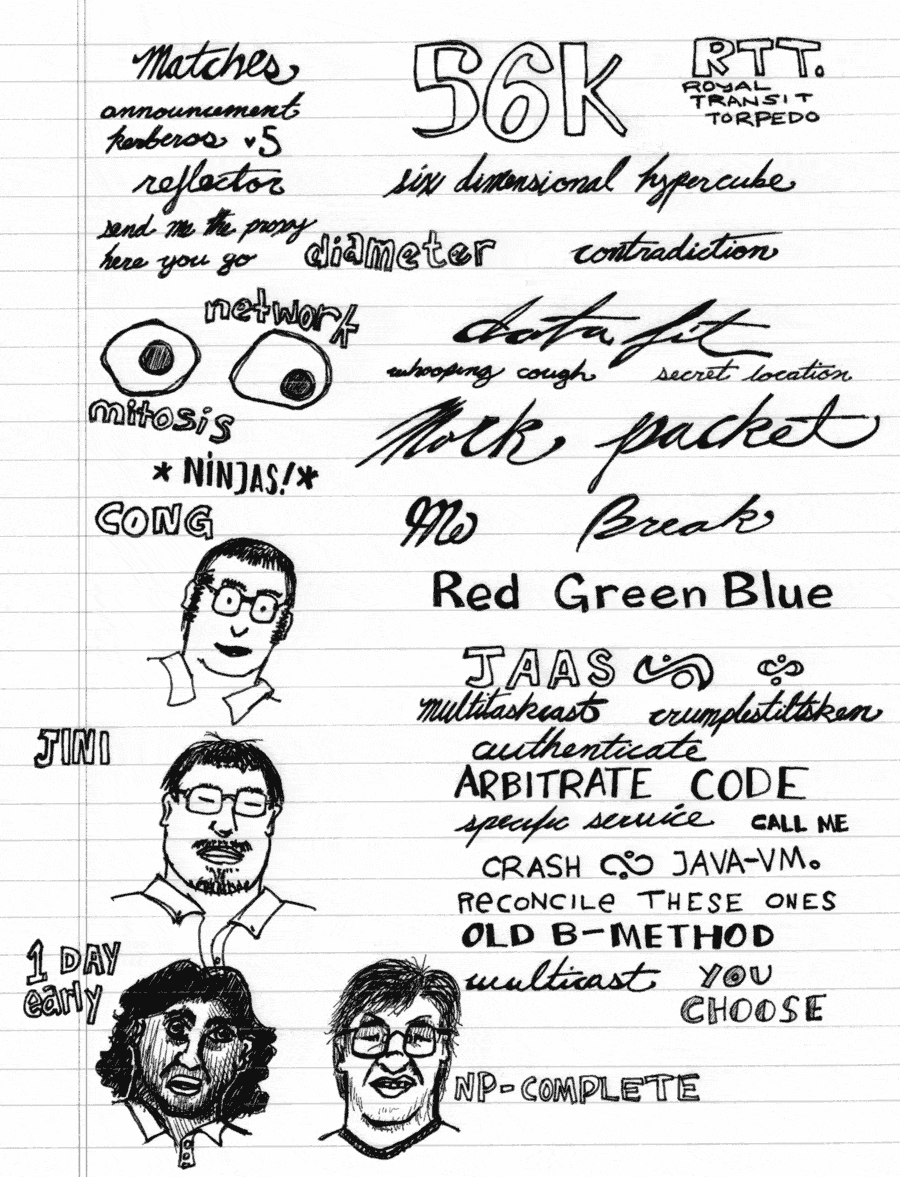 Matches
announcement
kerberos v5
reflector
send me the proxy
here you go
56K
RTT.
ROYAL
TRANSIT
TORPEDO
six dimensional hypercube
diameter
contradiction
network
mitosis
data fit
whooping cough
secret location
Mock packet
* NINJAS! *
CONG
Me Break
Red Green Blue
JAAS
multitaskcast crumplestiltsken
authenticate
JINI
ARBITRATE CODE
specific service CALL ME
CRASH JAVA-VM.
RECONCILE THESE ONES
OLD B-METHOD
multicast YOU
CHOOSE
1 DAY
early
NP-COMPLETE